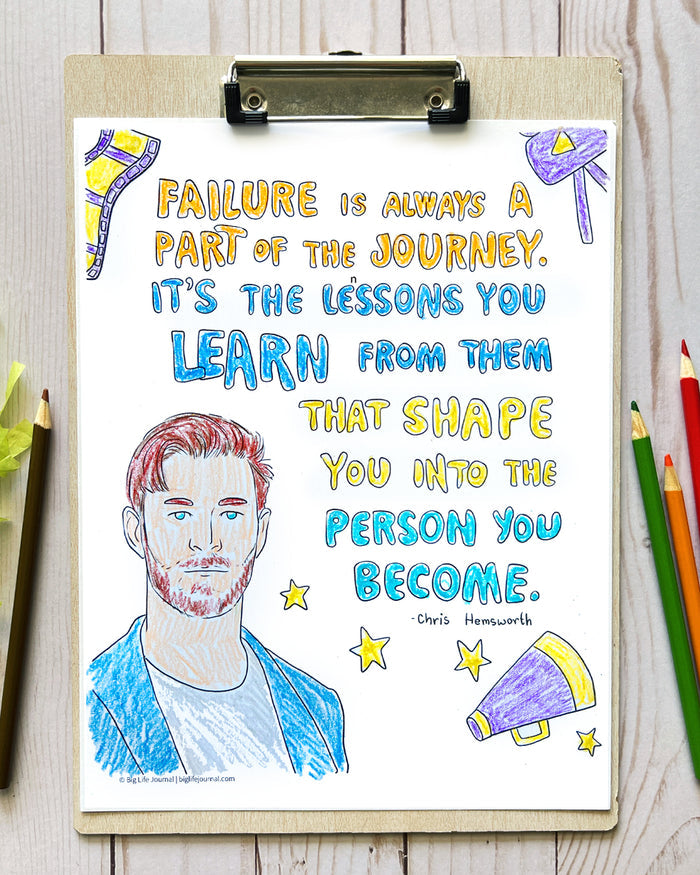 FAILURE IS ALWAYS A
PART OF THE JOURNEY.
IT'S THE LESSONS YOU
LEARN FROM THEM
THAT SHAPE
YOU INTO THE
PERSON YOU
BECOME.
-Chris Hemsworth
© Big Life Journal | biglifejournal.com